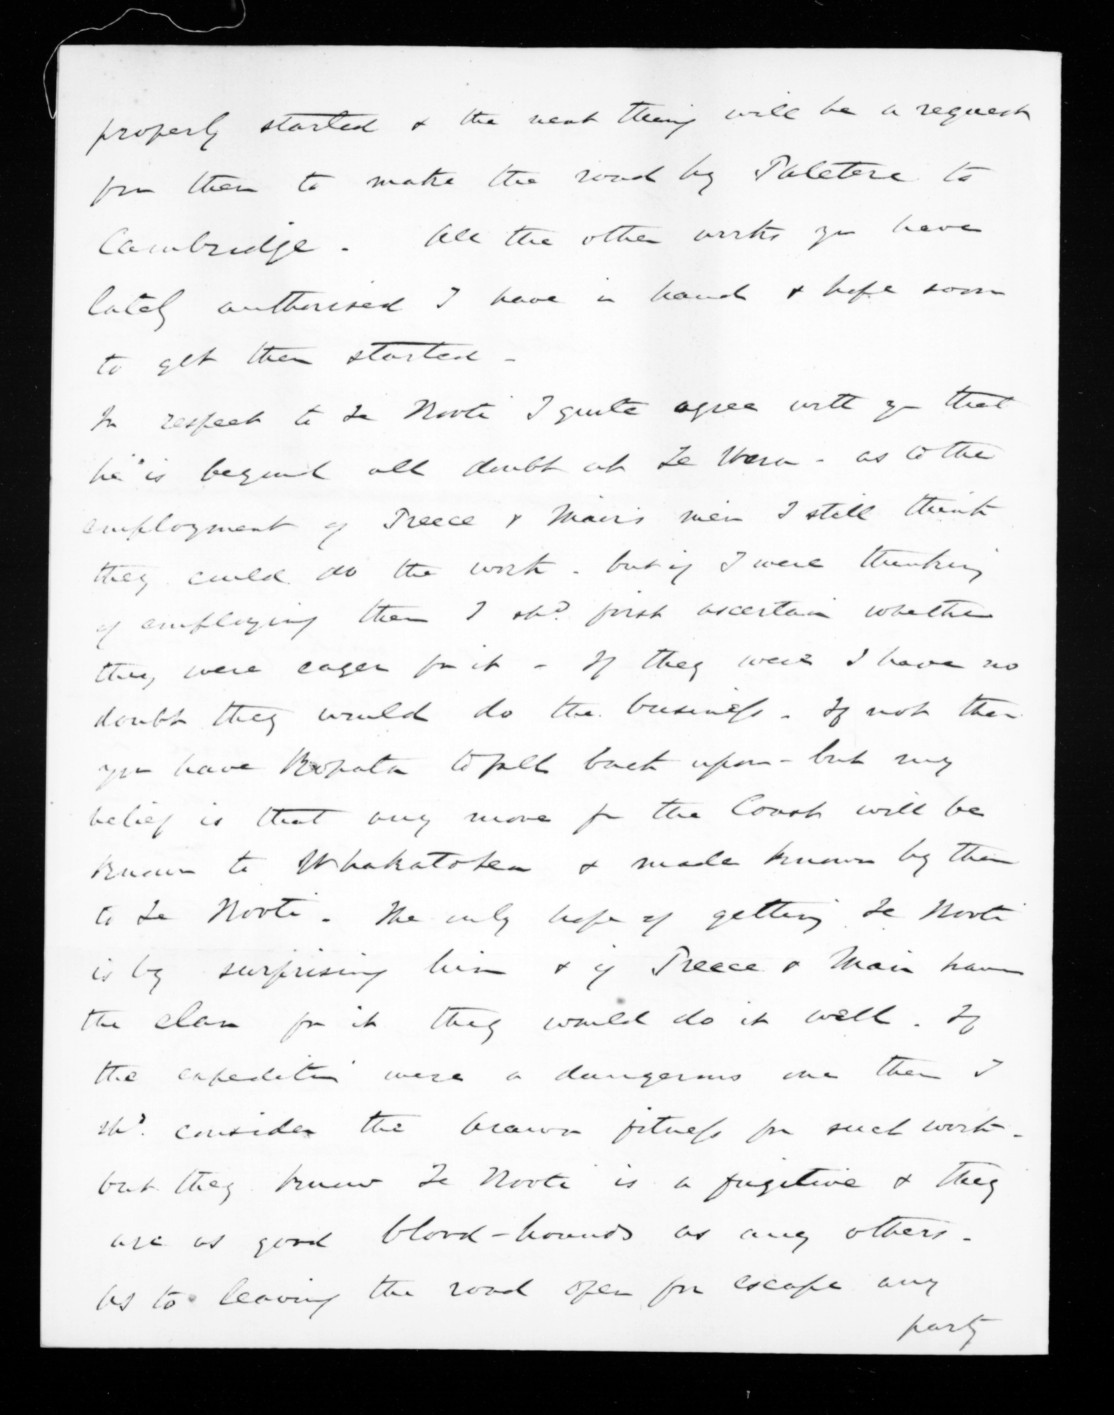 properly started & the next thing will be a request
from them to make the road by Patetere to
Cambridge. All the other works you have
lately authorised I have in hand & hope soon
to get them started -
In respect to Te Kooti I quite agree with you that
he is beyond all doubt at Te Wera - as to the
employment of Preece & Mair's men I still think
they could do the work - but if I were thinking
of employing them I shd. first ascertain whether
they were eager for it - If they were I have no
doubt they would do the business. If not then
you have Ropata to fall back upon - but my
belief is that any move fr the Coast will be
known to Whakatohea & made known by them
to Te Kooti. The only hope of getting Te Kooti
is by surprising him & if Preece & Mair have
the elan for it they would do it well. If
the expedition were a dangerous one then I
shd. consider the fitness for such work -
but they know Te Kooti is a fugitive & they
are as good blood-hounds as any others -
As to leaving the road open for escape any
party